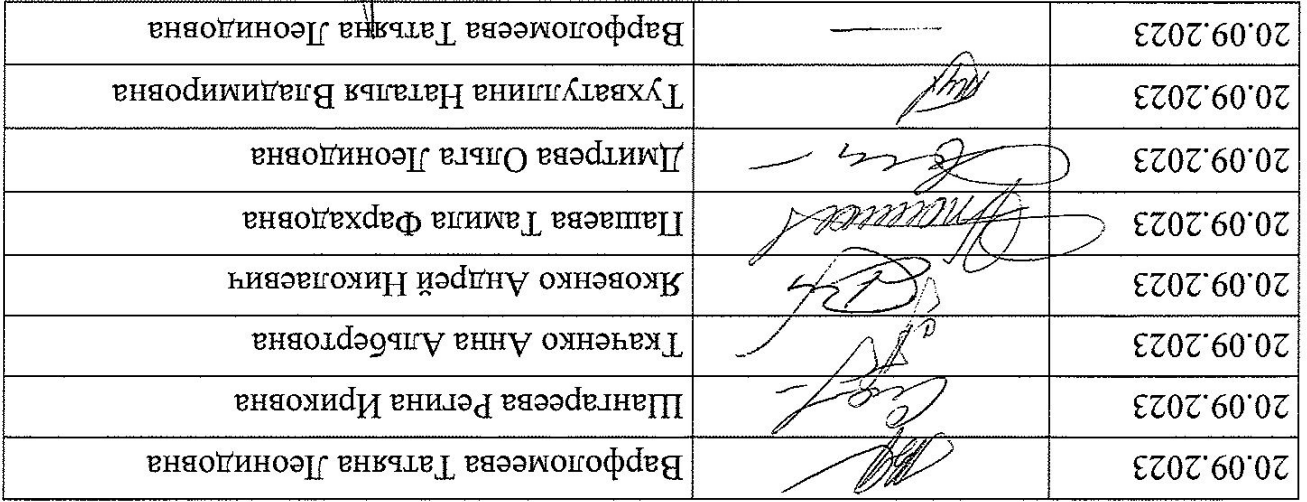 20.09.2023 Варфоломеева Татьяна Леонидовна
20.09.2023 Шангареева Регина Ириковна
20.09.2023 Ткаченко Анна Альбертовна
20.09.2023 Яковенко Андрей Николаевич
20.09.2023 Пашаева Тамила Фархадовна
20.09.2023 Дмитрева Ольга Леонидовна
20.09.2023 Тухватуллина Наталья Владимировна
20.09.2023 — Варфоломеева Татьяна Леонидовна